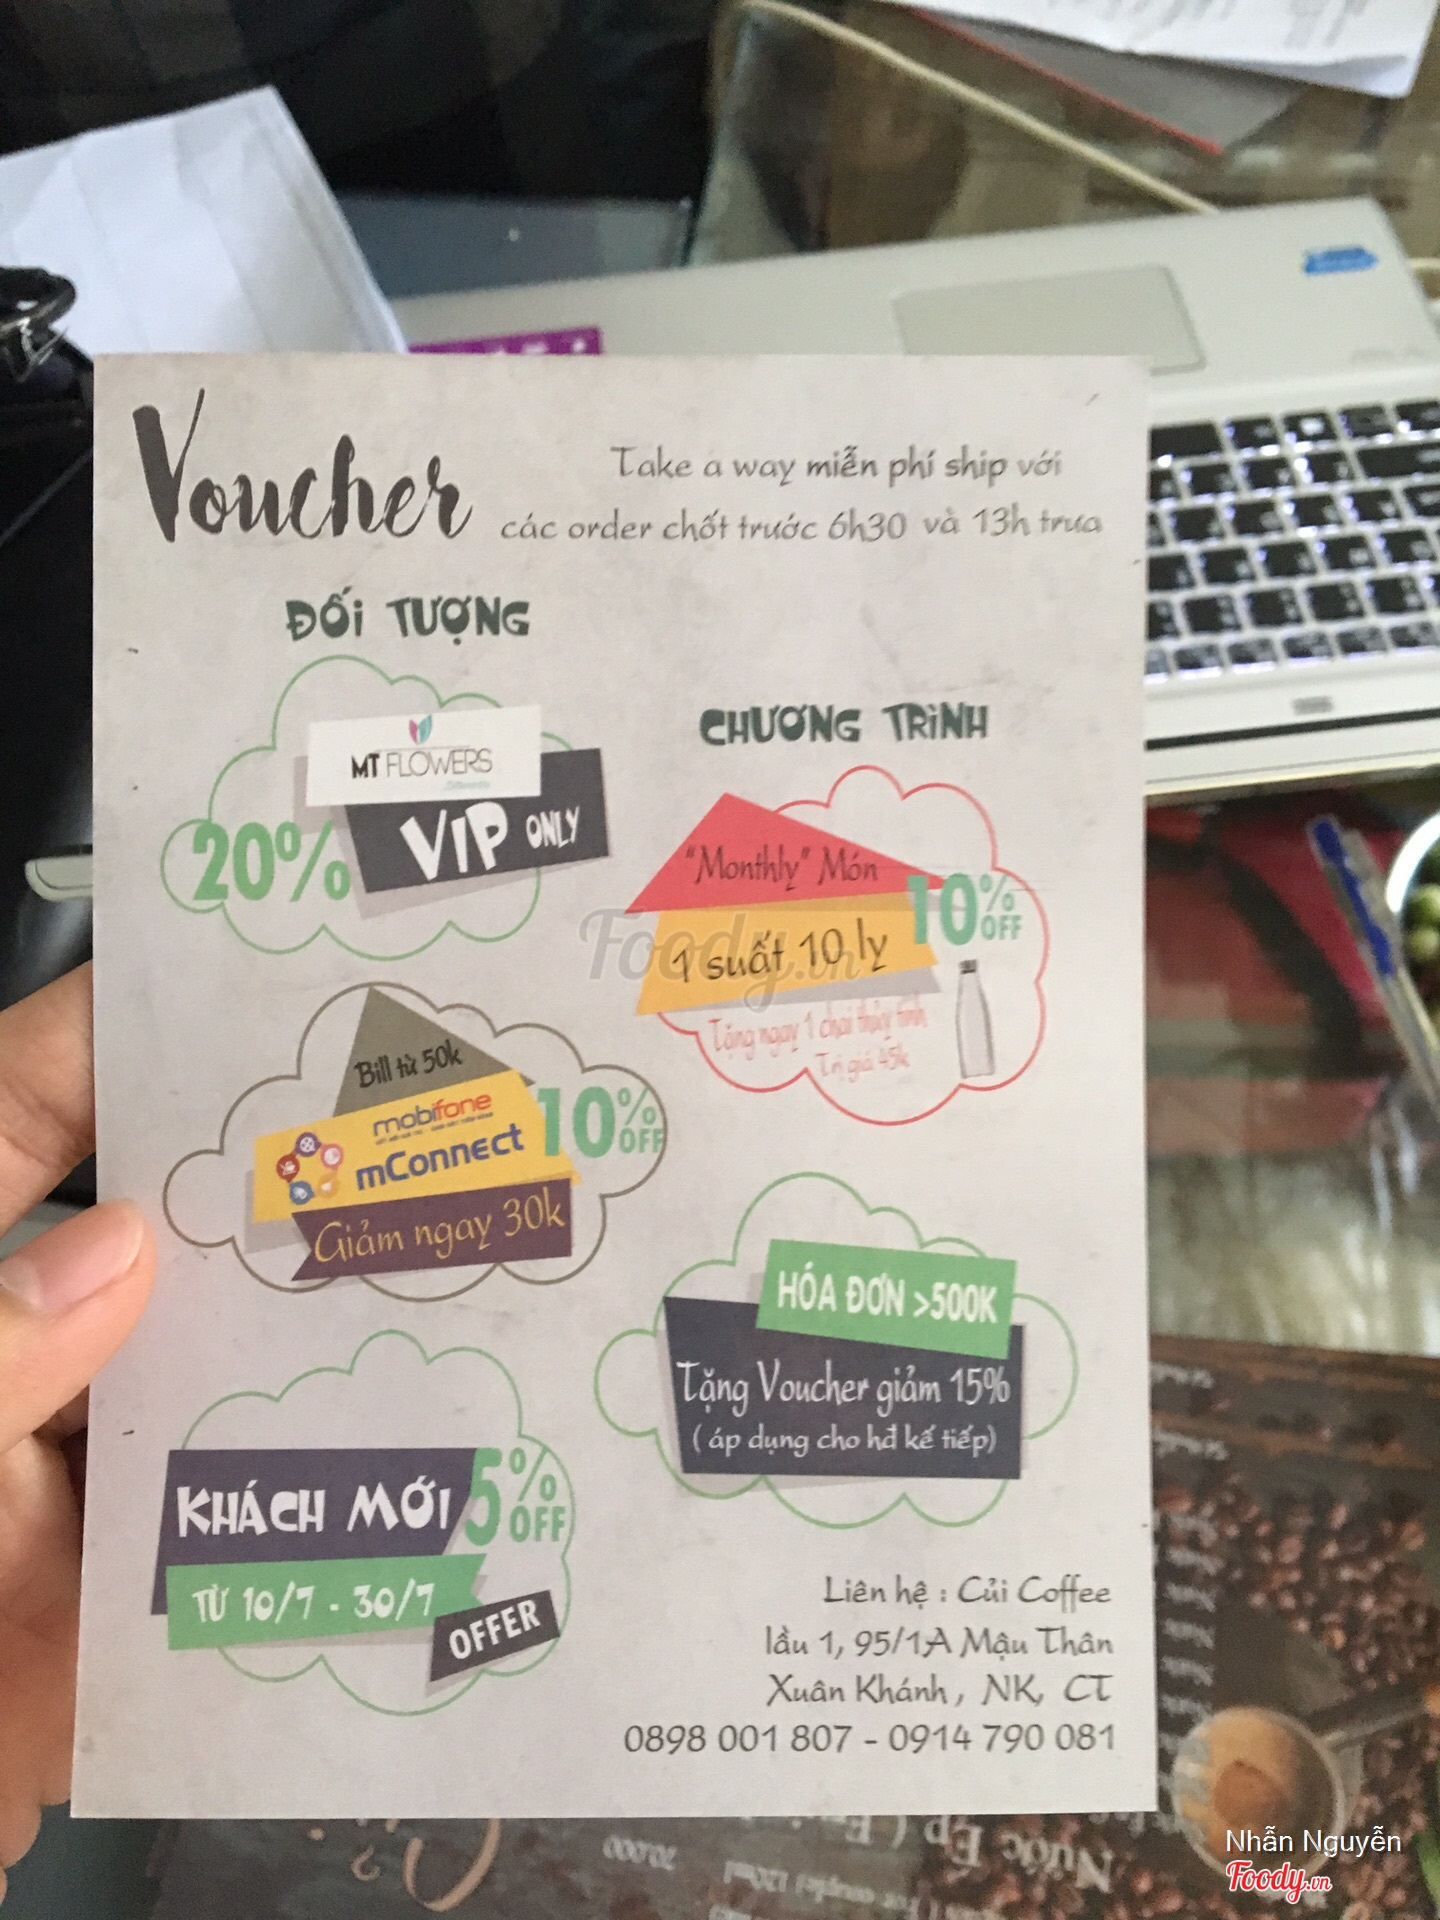 Voucher
Take a way miễn phí ship với
các order chốt trước 6h30 và 13h trưa
ĐỐI TƯỢNG
MT FLOWERS
20%
VIP ONLY
Bill từ 50k
mobifone
mConnect
10% OFF
Giảm ngay 30k
KHÁCH MỚI
5% OFF
TỪ 10/7 - 30/7
OFFER
CHƯƠNG TRÌNH
"Monthly" Món
10% OFF
1 suất 10 ly
Tặng ngay 1 chai thủy tinh
Trị giá 45k
HÓA ĐƠN >500K
Tặng Voucher giảm 15%
( áp dụng cho hđ kế tiếp)
Liên hệ : Củi Coffee
lầu 1, 95/1A Mậu Thân
Xuân Khánh , NK, CT
0898 001 807 - 0914 790 081
Foody.vn
Nước Ép
70.000
Nhẫn Nguyễn
Foody.vn